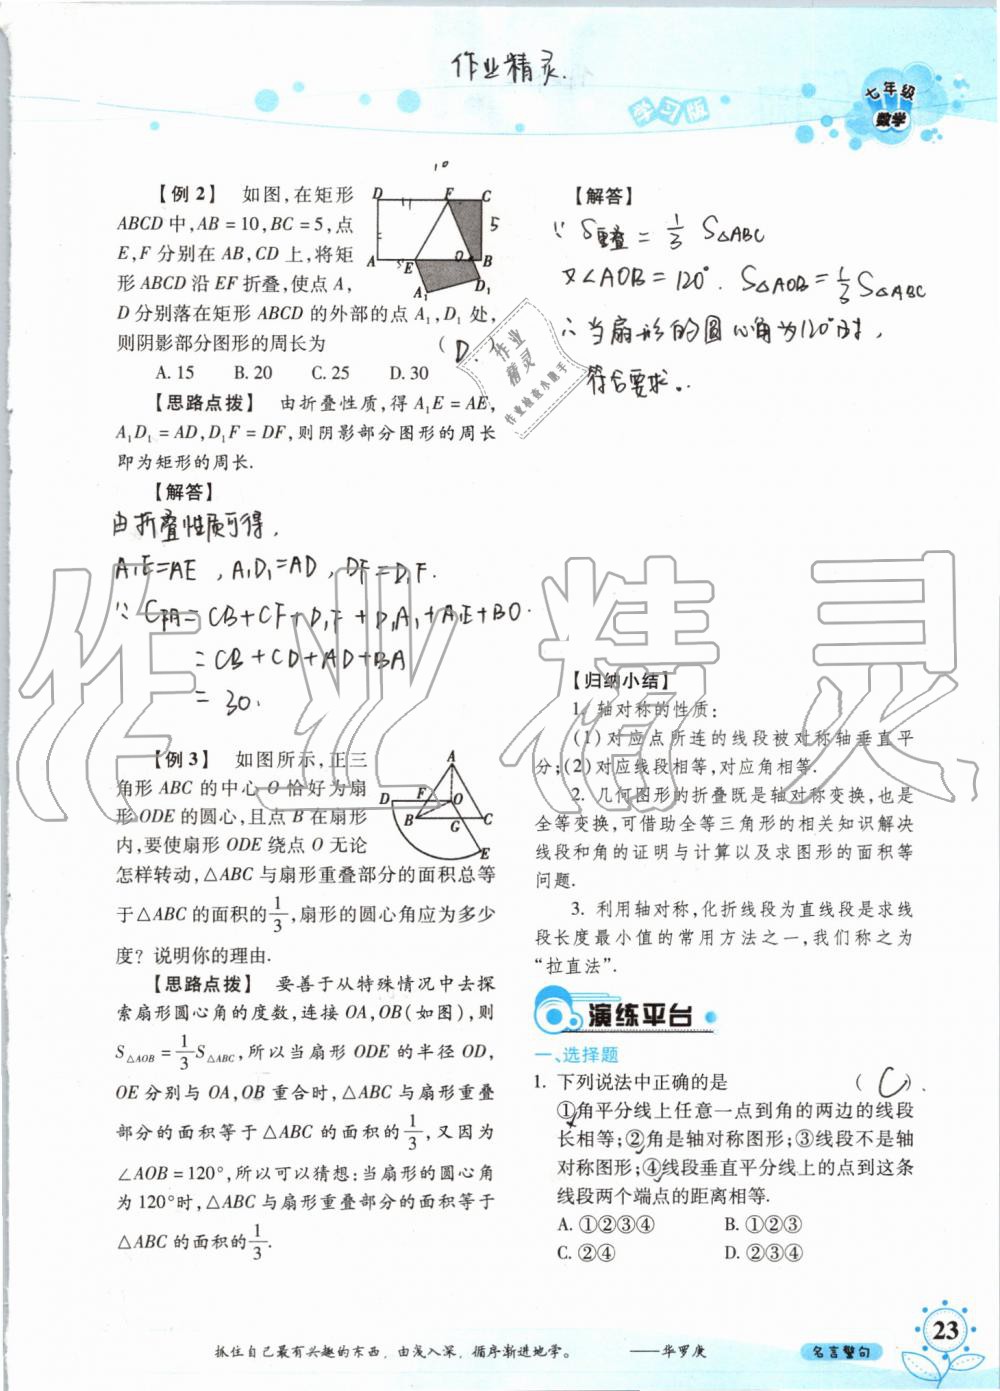 作业精灵.
学习版
七年级
数学
【例2】 如图,在矩形
ABCD中,AB=10,BC=5,点
E,F分别在AB,CD上,将矩
形ABCD沿EF折叠,使点A,
D分别落在矩形ABCD的外部的点A₁,D₁处,
则阴影部分图形的周长为 ( D. )
A. 15 B. 20 C. 25 D. 30
10
D F C
5
A E O B
5
A₁ D₁
【思路点拨】 由折叠性质,得A₁E=AE,
A₁D₁=AD,D₁F=DF,则阴影部分图形的周长
即为矩形的周长.
【解答】
由折叠性质可得,
A₁E=AE,A₁D₁=AD,DF=D₁F.
∵C阴=CB+CF+D₁F+D₁A₁+A₁E+BO.
=CB+CD+AD+BA
=30.
【例3】 如图所示,正三
角形ABC的中心O恰好为扇
形ODE的圆心,且点B在扇形
内,要使扇形ODE绕点O无论
怎样转动,△ABC与扇形重叠部分的面积总等
于△ABC的面积的1/3,扇形的圆心角应为多少
度?说明你的理由.
A
D F O
B G C
E
【思路点拨】 要善于从特殊情况中去探
索扇形圆心角的度数,连接OA,OB(如图),则
S△AOB=1/3S△ABC,所以当扇形ODE的半径OD,
OE分别与OA,OB重合时,△ABC与扇形重叠
部分的面积等于△ABC的面积的1/3,又因为
∠AOB=120°,所以可以猜想:当扇形的圆心角
为120°时,△ABC与扇形重叠部分的面积等于
△ABC的面积的1/3.
【解答】
∵S重叠=1/3 S△ABC
又∠AOB=120°. S△AOB=1/3S△ABC
∴当扇形的圆心角为120°时,
符合要求.
作业
精灵
作业检查小助手
作业精灵
【归纳小结】
1. 轴对称的性质:
(1)对应点所连的线段被对称轴垂直平
分;(2)对应线段相等,对应角相等.
2. 几何图形的折叠既是轴对称变换,也是
全等变换,可借助全等三角形的相关知识解决
线段和角的证明与计算以及求图形的面积等
问题.
3. 利用轴对称,化折线段为直线段是求线
段长度最小值的常用方法之一,我们称之为
“拉直法”.
演练平台
一、选择题
1. 下列说法中正确的是 ( C ).
①角平分线上任意一点到角的两边的线段
长相等;②角是轴对称图形;③线段不是轴
对称图形;④线段垂直平分线上的点到这条
线段两个端点的距离相等.
A. ①②③④ B. ①②③
C. ②④ D. ②③④
抓住自己最有兴趣的东西,由浅入深,循序渐进地学。 ——华罗庚
名言警句
23